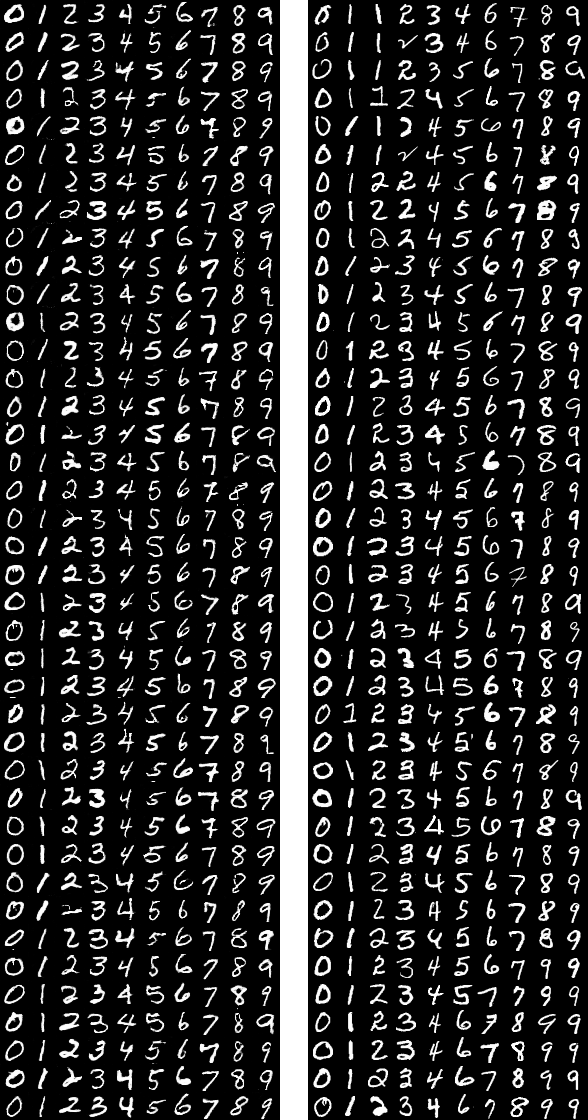 0 1 2 3 4 5 6 7 8 9
0 1 2 3 4 5 6 7 8 9
0 1 2 3 4 5 6 7 8 9
0 1 2 3 4 5 6 7 8 9
0 1 2 3 4 5 6 7 8 9
0 1 2 3 4 5 6 7 8 9
0 1 2 3 4 5 6 7 8 9
0 1 2 3 4 5 6 7 8 9
0 1 2 3 4 5 6 7 8 9
0 1 2 3 4 5 6 7 8 9
0 1 2 3 4 5 6 7 8 9
0 1 2 3 4 5 6 7 8 9
0 1 2 3 4 5 6 7 8 9
0 1 2 3 4 5 6 7 8 9
0 1 2 3 4 5 6 7 8 9
0 1 2 3 4 5 6 7 8 9
0 1 2 3 4 5 6 7 8 9
0 1 2 3 4 5 6 7 8 9
0 1 2 3 4 5 6 7 8 9
0 1 2 3 4 5 6 7 8 9
0 1 2 3 4 5 6 7 8 9
0 1 2 3 4 5 6 7 8 9
0 1 2 3 4 5 6 7 8 9
0 1 2 3 4 5 6 7 8 9
0 1 2 3 4 5 6 7 8 9
0 1 2 3 4 5 6 7 8 9
0 1 2 3 4 5 6 7 8 9
0 1 2 3 4 5 6 7 8 9
0 1 2 3 4 5 6 7 8 9
0 1 2 3 4 5 6 7 8 9
0 1 2 3 4 5 6 7 8 9
0 1 2 3 4 5 6 7 8 9
0 1 2 3 4 5 6 7 8 9
0 1 2 3 4 5 6 7 8 9
0 1 2 3 4 5 6 7 8 9
0 1 2 3 4 5 6 7 8 9
0 1 2 3 4 5 6 7 8 9
0 1 2 3 4 5 6 7 8 9
0 1 2 3 4 5 6 7 8 9
0 1 2 3 4 5 6 7 8 9
0 1 1 2 3 4 6 7 8 9
0 1 1 2 3 4 6 7 8 9
0 1 1 2 3 5 6 7 8 9
0 1 1 2 4 5 6 7 8 9
0 1 1 2 4 5 6 7 8 9
0 1 1 2 4 5 6 7 8 9
0 1 2 2 4 5 6 7 8 9
0 1 2 2 4 5 6 7 8 9
0 1 2 2 4 5 6 7 8 9
0 1 2 3 4 5 6 7 8 9
0 1 2 3 4 5 6 7 8 9
0 1 2 3 4 5 6 7 8 9
0 1 2 3 4 5 6 7 8 9
0 1 2 3 4 5 6 7 8 9
0 1 2 3 4 5 6 7 8 9
0 1 2 3 4 5 6 7 8 9
0 1 2 3 4 5 6 7 8 9
0 1 2 3 4 5 6 7 8 9
0 1 2 3 4 5 6 7 8 9
0 1 2 3 4 5 6 7 8 9
0 1 2 3 4 5 6 7 8 9
0 1 2 3 4 5 6 7 8 9
0 1 2 3 4 5 6 7 8 9
0 1 2 3 4 5 6 7 8 9
0 1 2 3 4 5 6 7 8 9
0 1 2 3 4 5 6 7 8 9
0 1 2 3 4 5 6 7 8 9
0 1 2 3 4 5 6 7 8 9
0 1 2 3 4 5 6 7 8 9
0 1 2 3 4 5 6 7 8 9
0 1 2 3 4 5 6 7 8 9
0 1 2 3 4 5 6 7 8 9
0 1 2 3 4 5 6 7 8 9
0 1 2 3 4 5 6 7 8 9
0 1 2 3 4 5 6 7 9 9
0 1 2 3 4 5 7 7 9 9
0 1 2 3 4 6 7 8 9 9
0 1 2 3 4 6 7 8 9 9
0 1 2 3 4 6 7 8 9 9
0 1 2 3 4 6 7 8 9 9